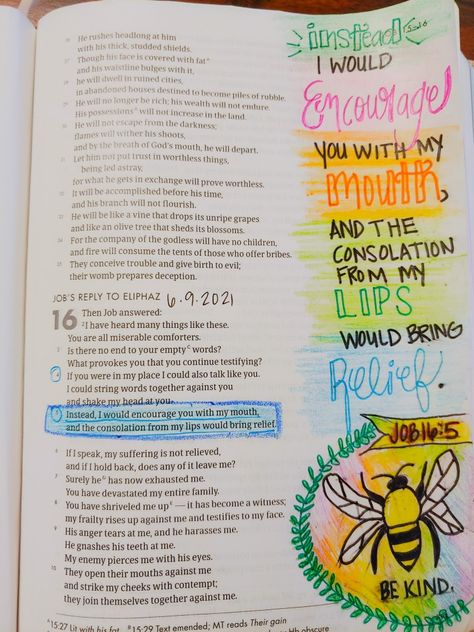 26 He rushes headlong at him
with his thick, studded shields.
27 Though his face is covered with fat^A
and his waistline bulges with it,
28 he will dwell in ruined cities,
in abandoned houses destined to become piles of rubble.
29 He will no longer be rich; his wealth will not endure.
His possessions^B will not increase in the land.
30 He will not escape from the darkness;
flames will wither his shoots,
and by the breath of God's mouth, he will depart.
31 Let him not put trust in worthless things,
being led astray,
for what he gets in exchange will prove worthless.
32 It will be accomplished before his time,
and his branch will not flourish.
33 He will be like a vine that drops its unripe grapes
and like an olive tree that sheds its blossoms.
34 For the company of the godless will have no children,
and fire will consume the tents of those who offer bribes.
35 They conceive trouble and give birth to evil;
their womb prepares deception.
JOB'S REPLY TO ELIPHAZ 6.9.2021
16 Then Job answered:
2 I have heard many things like these.
You are all miserable comforters.
3 Is there no end to your empty^C words?
What provokes you that you continue testifying?
4 If you were in my place I could also talk like you.
I could string words together against you
and shake my head at you.
5 Instead, I would encourage you with my mouth,
and the consolation from my lips would bring relief.
6 If I speak, my suffering is not relieved,
and if I hold back, does any of it leave me?
7 Surely he^D has now exhausted me.
You have devastated my entire family.
8 You have shriveled me up^E — it has become a witness;
my frailty rises up against me and testifies to my face.
9 His anger tears at me, and he harasses me.
He gnashes his teeth at me.
My enemy pierces me with his eyes.
10 They open their mouths against me
and strike my cheeks with contempt;
they join themselves together against me.
^A15:27 Lit with his fat ^B15:29 Text emended; MT reads Their gain
Hb obscure
instead
I WOULD
Encourage
YOU WITH MY
MOUTH,
AND THE
CONSOLATION
FROM MY
LIPS
WOULD BRING
Relief.
JOB 16:5
BE KIND.